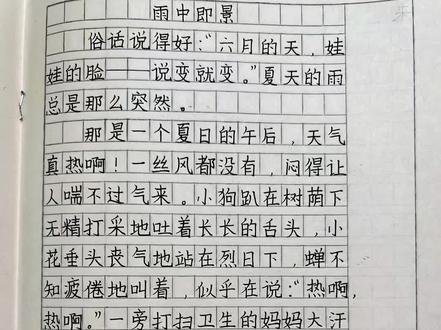 雨中即景
俗话说得好:“六月的天，娃
娃的脸——说变就变。”夏天的雨
总是那么突然。
那是一个夏日的午后，天气
真热啊！一丝风都没有，闷得让
人喘不过气来。小狗趴在树荫下
无精打采地吐着长长的舌头，小
花垂头丧气地站在烈日下，蝉不
知疲倦地叫着，似乎在说:“热啊，
热啊。”一旁打扫卫生的妈妈大汗